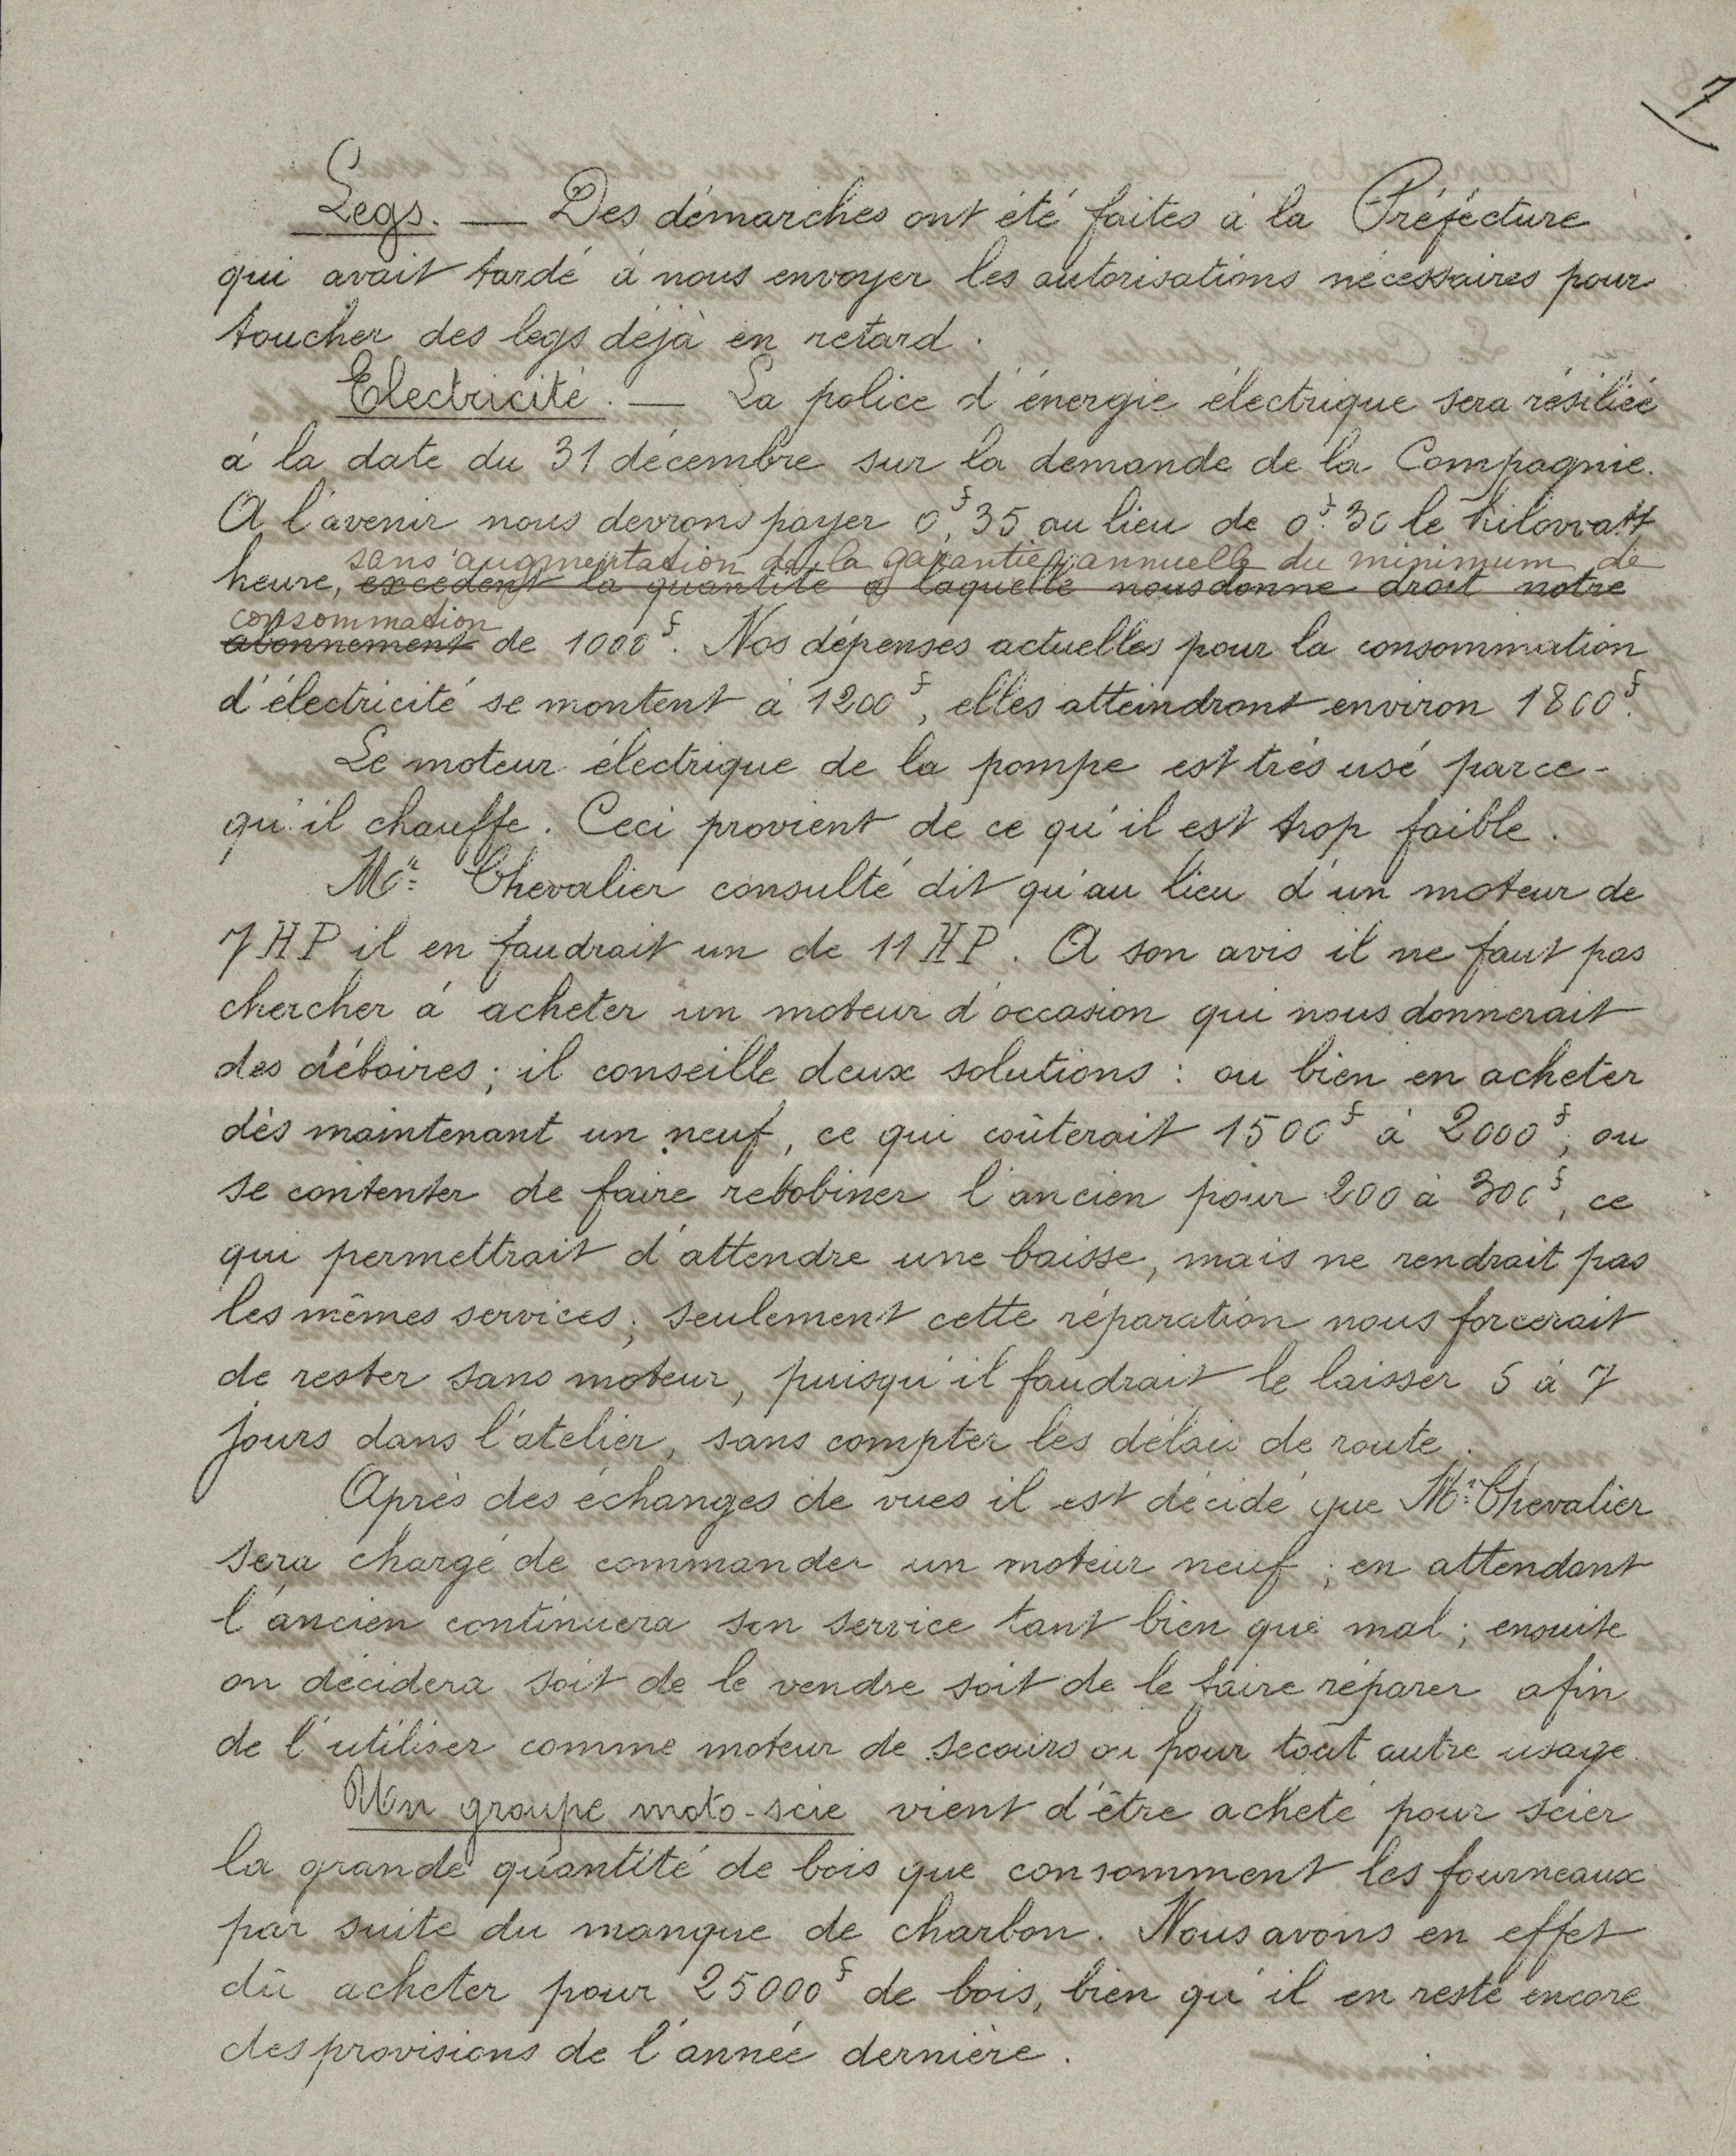 7
Legs. — Des démarches ont été faites à la Préfecture
qui avait tardé à nous envoyer les autorisations nécessaires pour
toucher des legs déjà en retard.
Electricité. — La police d'énergie électrique sera résiliée
à la date du 31 décembre sur la demande de la Compagnie.
A l'avenir nous devrons payer 0f,35 au lieu de 0f.30 le kilowatt
sans augmentation de la garantie annuelle du minimum de
heure, excédent la quantité à laquelle nous donne droit notre
consommation
abonnement de 1000f. Nos dépenses actuelles pour la consommation
d'électricité se montent à 1200f, elles atteindront environ 1800f.
Le moteur électrique de la pompe est très usé parce-
qu'il chauffe. Ceci provient de ce qu'il est trop faible.
Mr Chevalier consulté dit qu'au lieu d'un moteur de
7 HP il en faudrait un de 11 HP. A son avis il ne faut pas
chercher à acheter un moteur d'occasion qui nous donnerait
des déboires; il conseille deux solutions: ou bien en acheter
dès maintenant un neuf, ce qui coûterait 1500f à 2000f, ou
se contenter de faire rebobiner l'ancien pour 200 à 300f, ce
qui permettrait d'attendre une baisse, mais ne rendrait pas
les mêmes services; seulement cette réparation nous forcerait
de rester sans moteur, puisqu'il faudrait le laisser 5 à 7
jours dans l'atelier, sans compter les délais de route.
Après des échanges de vues il est décidé que Mr Chevalier
sera chargé de commander un moteur neuf; en attendant
l'ancien continuera son service tant bien que mal; ensuite
on décidera soit de le vendre soit de le faire réparer afin
de l'utiliser comme moteur de secours ou pour tout autre usage.
Un groupe moto-scie vient d'être acheté pour scier
la grande quantité de bois que consomment les fourneaux
par suite du manque de charbon. Nous avons en effet
dû acheter pour 25000f de bois, bien qu'il en reste encore
des provisions de l'année dernière.